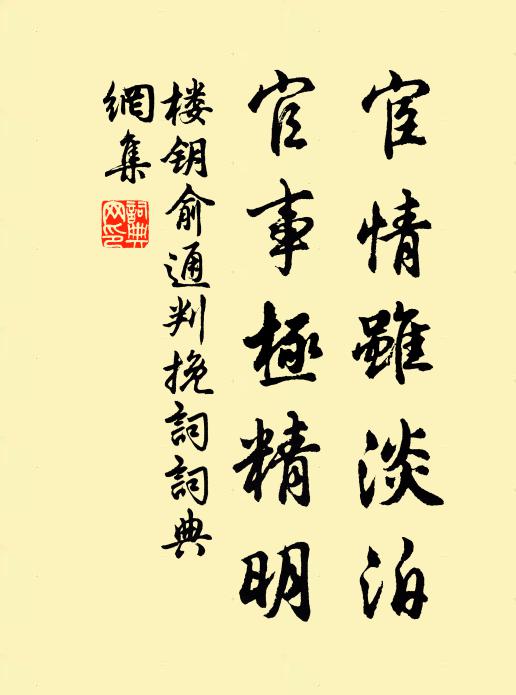 宦情雖淡泊
官事極精明
楼钥俞通判挽詞詞典
網集
詞典
網印